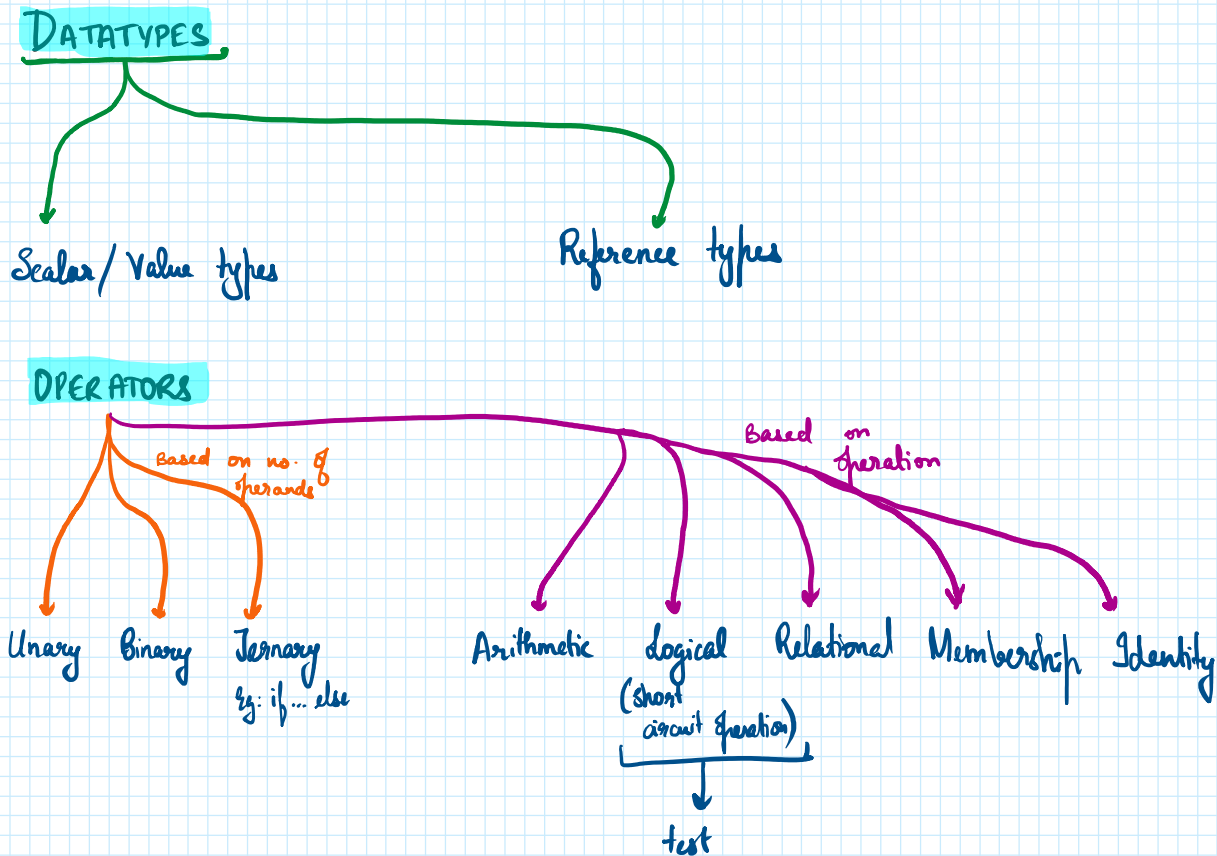 DATATYPES
Scalar/Value types
Reference types
OPERATORS
Based on no. of
operands
Based on
operation
Unary
Binary
Ternary
Eg: if... else
Arithmetic
Logical
(short
circuit operation)
test
Relational
Membership
Identity